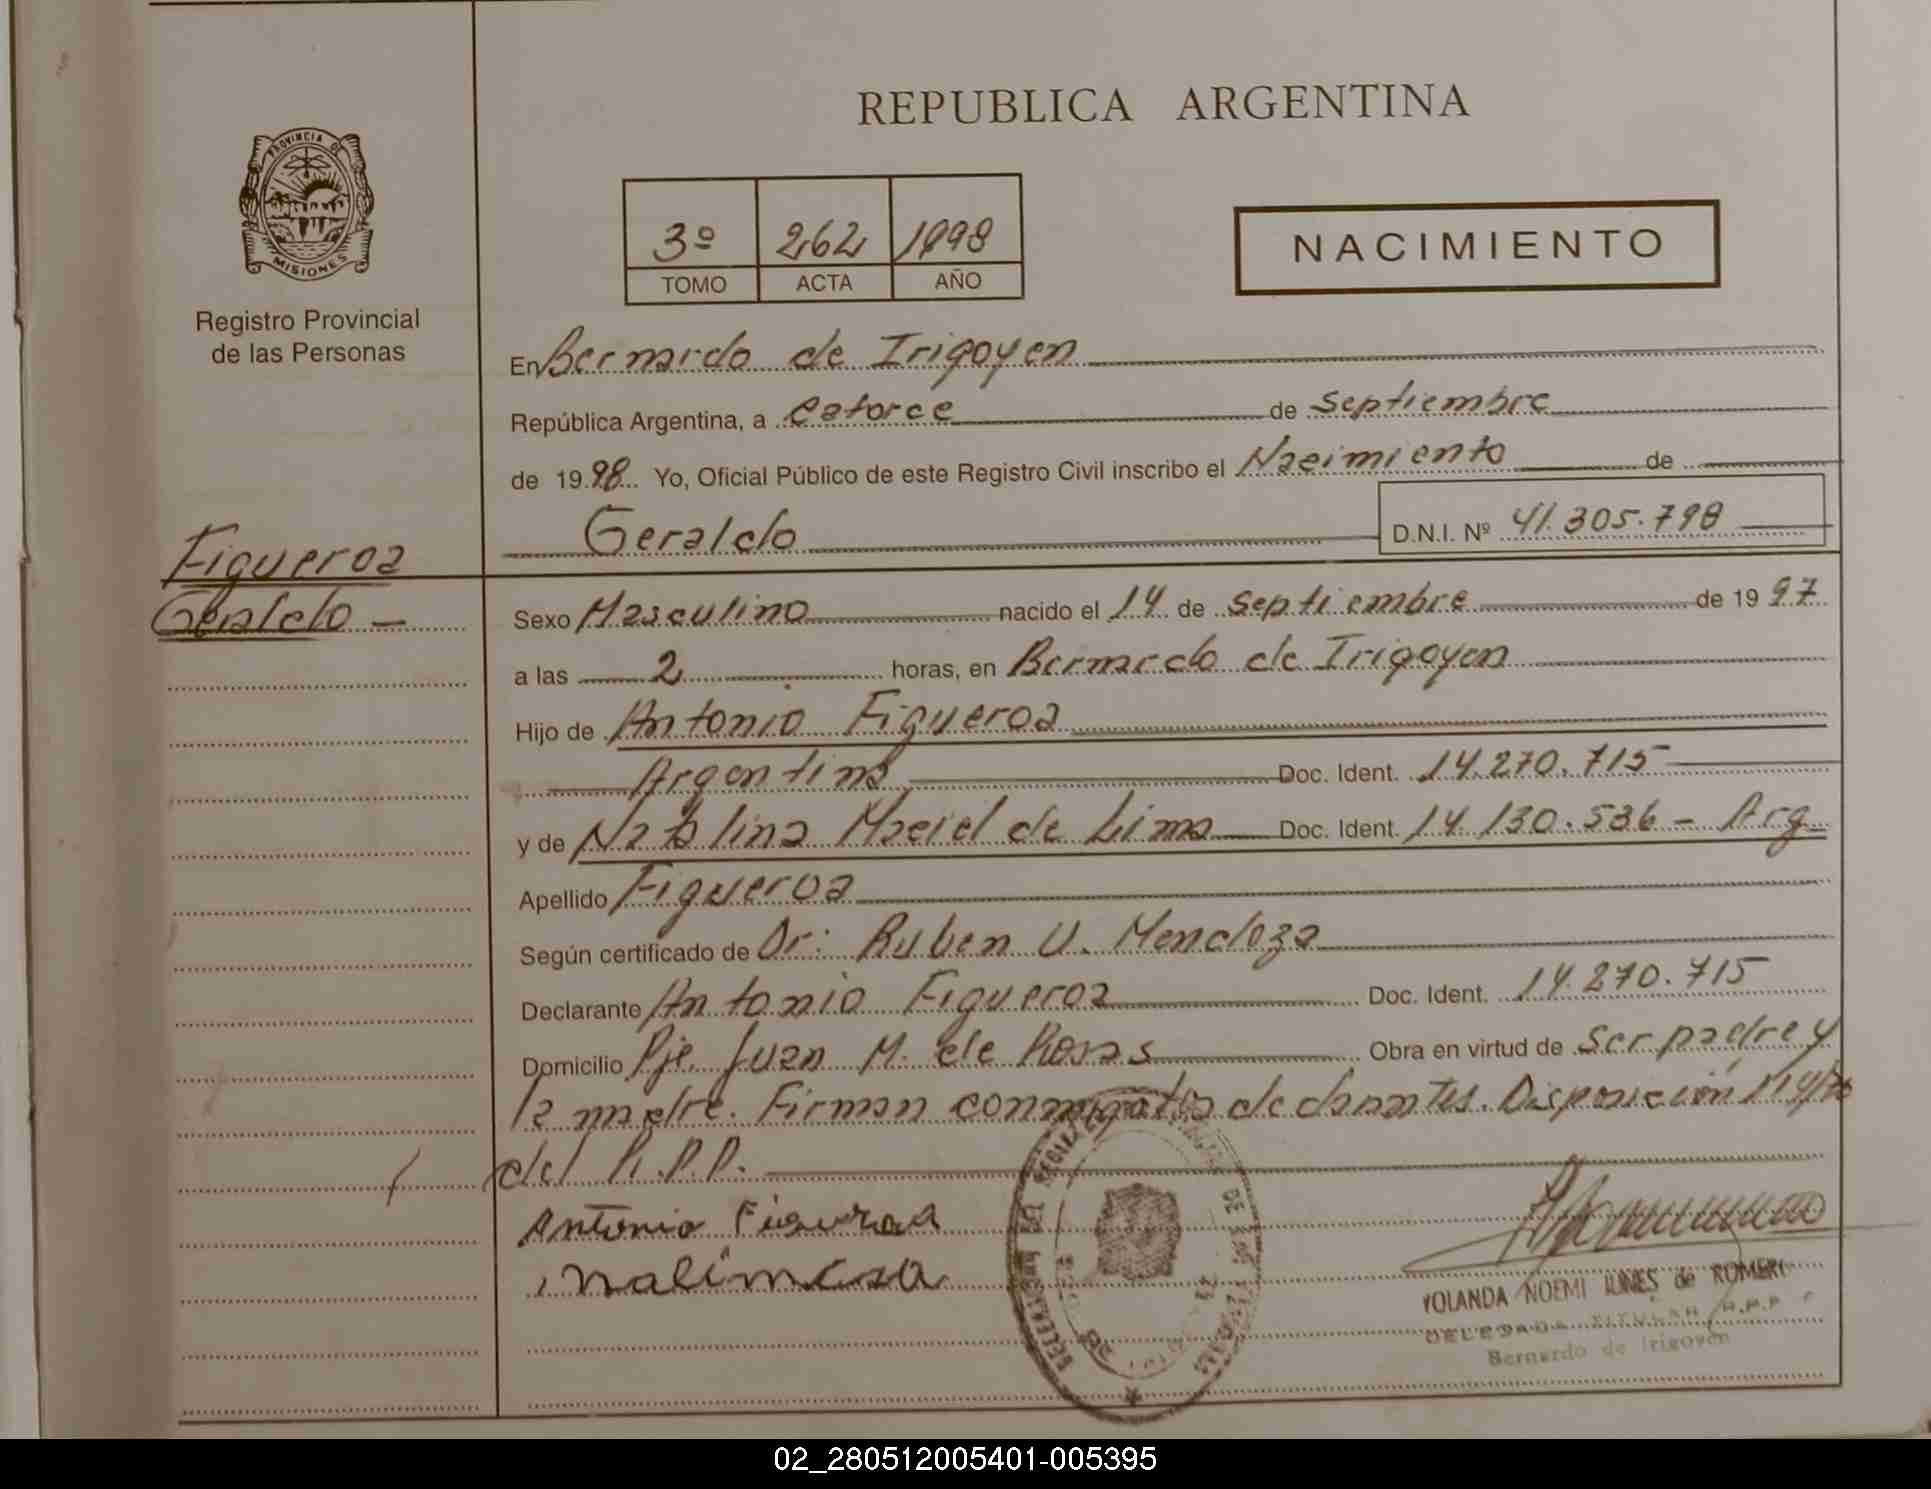 PROVINCIA DE
MISIONES
Registro Provincial
de las Personas
Figueroa
Geraldo —
REPUBLICA ARGENTINA
3º 262 1998
TOMO ACTA AÑO
NACIMIENTO
En Bernardo de Irigoyen
República Argentina, a catorce de Septiembre
de 1998. Yo, Oficial Público de este Registro Civil inscribo el Nacimiento de
Geraldo D.N.I. Nº 41.305.798
Sexo Masculino nacido el 14 de Septiembre de 1997
a las 2 horas, en Bernardo de Irigoyen
Hijo de Antonio Figueroa
Argentina Doc. Ident. 14.270.715
y de Natalina Maciel de Lima Doc. Ident. 14.130.536 - Arg
Apellido Figueroa
Según certificado de Dr: Ruben U. Mendoza
Declarante Antonio Figueroa Doc. Ident. 14.270.715
Domicilio Pje. Juan M. de Rosas Obra en virtud de Ser padre y
la madre. Firman conmigo los declarantes. Disposición
del R.P.P.
Antonio Figueroa
YOLANDA NOEMI de ROMERO
DELEGADA TITULAR R.P.P
Bernardo de Irigoyen
02_280512005401-005395